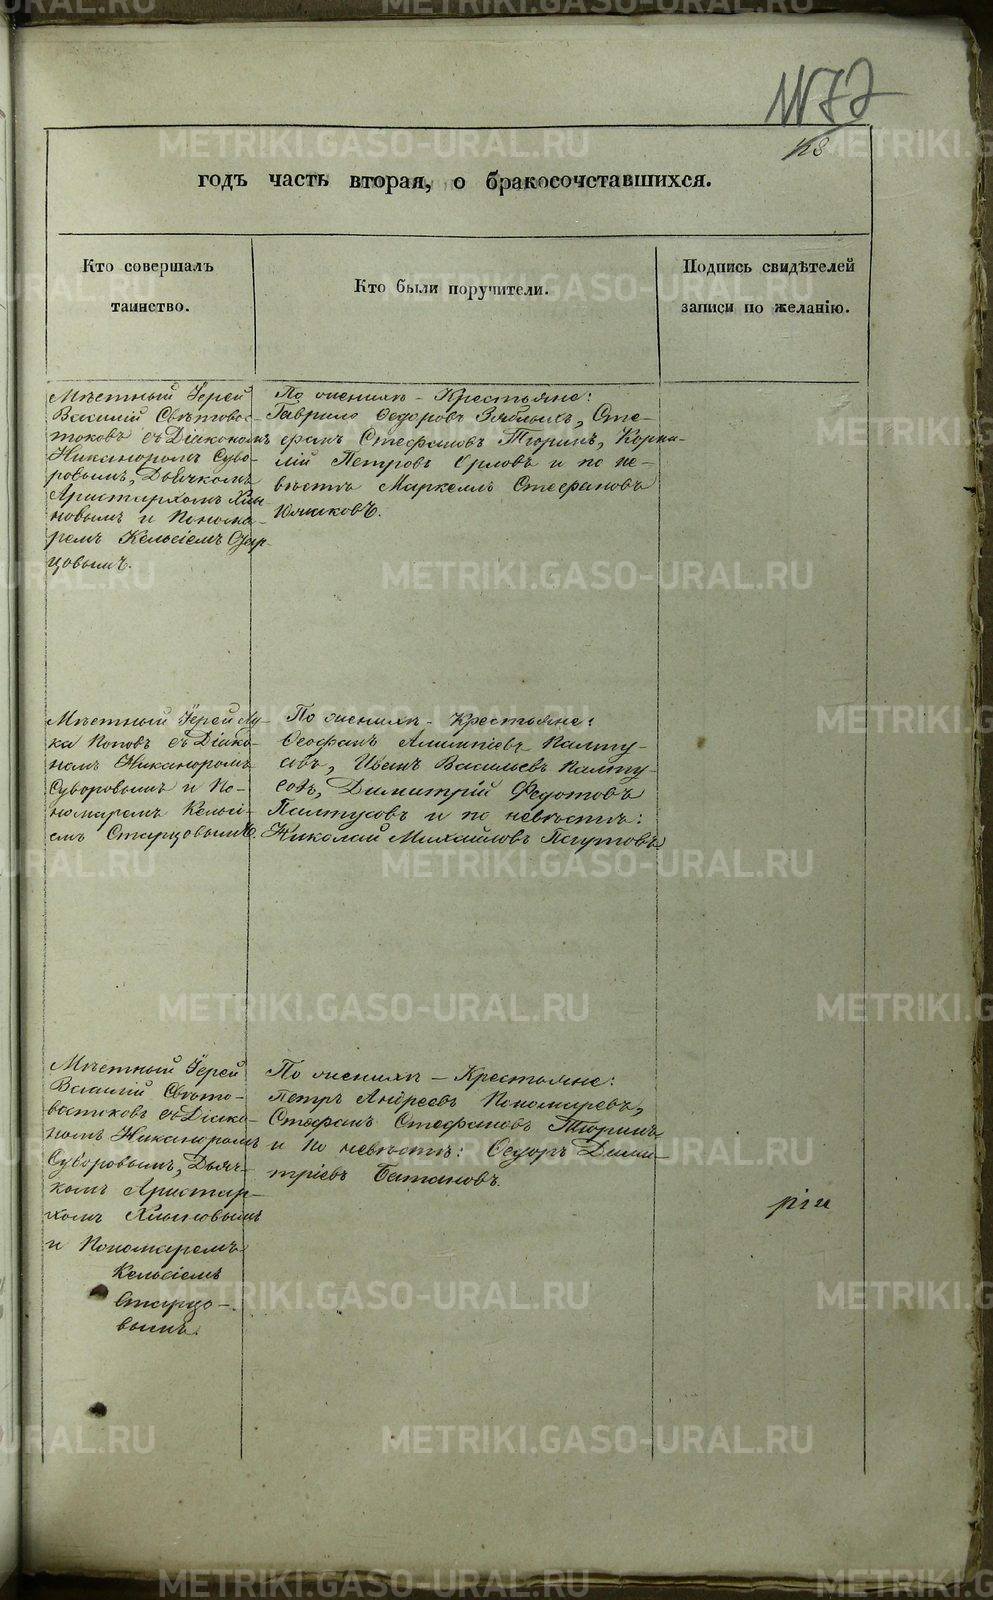 годъ часть вторая, о бракосочставшихся.
Кто совершалъ
таинство.
Кто были поручители.
Подпись свидѣтелей
записи по желанію.
Мѣстный Іерей
Василій Свѣтовос-
токовъ съ Діакономъ
Никаноромъ Суво-
ровымъ, Дьячкомъ
Аристархомъ
новымъ и Понома-
ремъ Кельсіемъ Стар-
цовымъ.
По женихѣ - Крестьяне:
Гаврило Ѳедоровъ Зяблыхъ, Сте-
фанъ Стефановъ Тюринъ, Корни-
лій Петровъ Орловъ и по не-
вѣстѣ Маркеллъ Стефановъ
Мѣстный Іерей Лу-
ка Поповъ съ Діако-
номъ Никаноромъ
Суворовымъ и По-
номаремъ Кельсі-
емъ Старцовымъ.
По женихѣ - Крестьяне:
Ѳеофанъ Алимпіевъ Палту-
совъ, Иванъ Васильевъ Палту-
совъ, Димитрій Федотовъ
Палтусовъ и по невѣстѣ:
Николай Михайловъ Паутовъ.
Мѣстный Іерей
Василій Свѣто-
востоковъ съ Діако-
номъ Никаноромъ
Суворовымъ, Дьяч-
комъ Аристар-
хомъ
и Пономаремъ
Кельсіемъ
Старцо-
вымъ.
По женихѣ - Крестьяне:
Петръ Андреевъ Пономаревъ,
Стефанъ Стефановъ Тюринъ
и по невѣстѣ: Ѳедоръ Дими-
тріевъ Батановъ.
METRIKI.GASO-URAL.RU